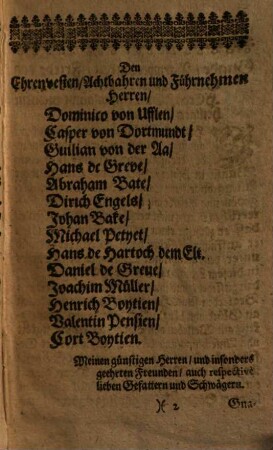 Den
Ehrenvesten/Achtbahren und Führnehmen
Herren/
Dominico von Ufflen/
Casper von Dortmundt/
Guilian von der Aa/
Hans de Greve/
Abraham Bate/
Dirich Engels/
Johan Bake/
Michael Petyet/
Hans de Hartoch dem Elt.
Daniel de Greue/
Joachim Müller/
Henrich Boytien/
Valentin Pensien/
Cort Boytien.
Meinen günstigen Herren/ und insonders
geehrten Freunden/ auch respective
lieben Gefattern und Schwägern.
)( 2 Gna-